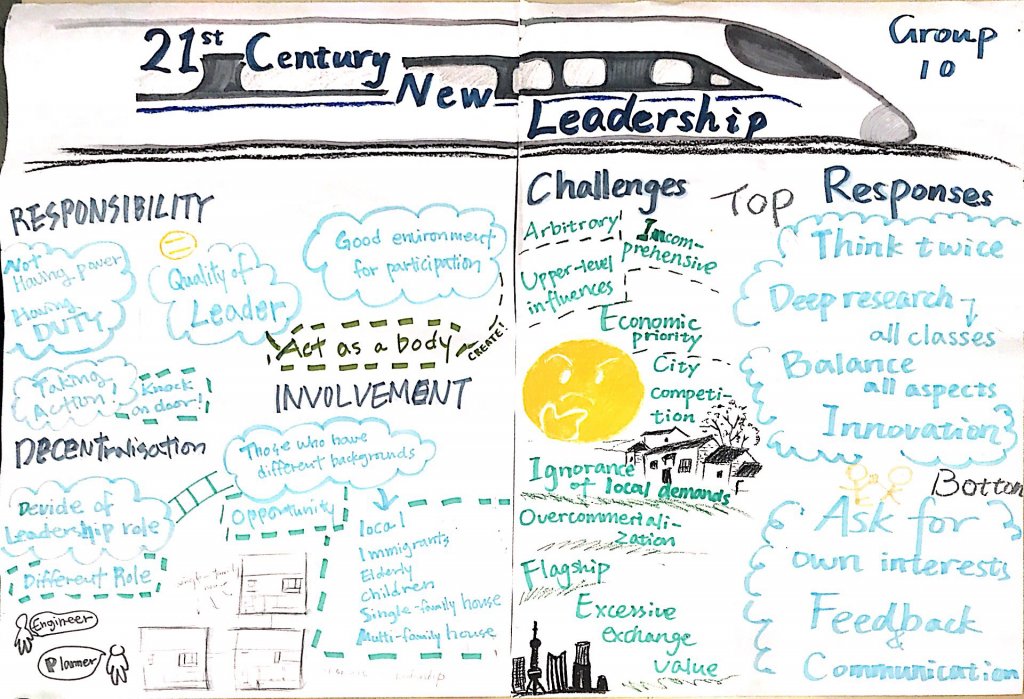 21st Century
New
Leadership
Group
10
RESPONSIBILITY
Not
Having power
Having
DUTY
Quality of
Leader
Good environment
for participation
Act as a body
CREATE!
Taking
Action
Knock
on door!
INVOLVEMENT
DECENtralisation
Those who have
different backgrounds
Devide of
Leadership role
Opportunity
Different Role
local
Immigrants
Elderly
children
Single-family house
Multi-family house
Engineer
Planner
Challenges
Arbitrary
Incom-
prehensive
Upper-level
influences
Economic
priority
City
competi-
tion
Ignorance
of local demands
Overcommertiali-
zation
Flagship
Excessive
exchange
value
TOP
Responses
Think twice
Deep research
all classes
Balance
all aspects
Innovation
Botton
Ask for
own interests
Feedback
&
Communication